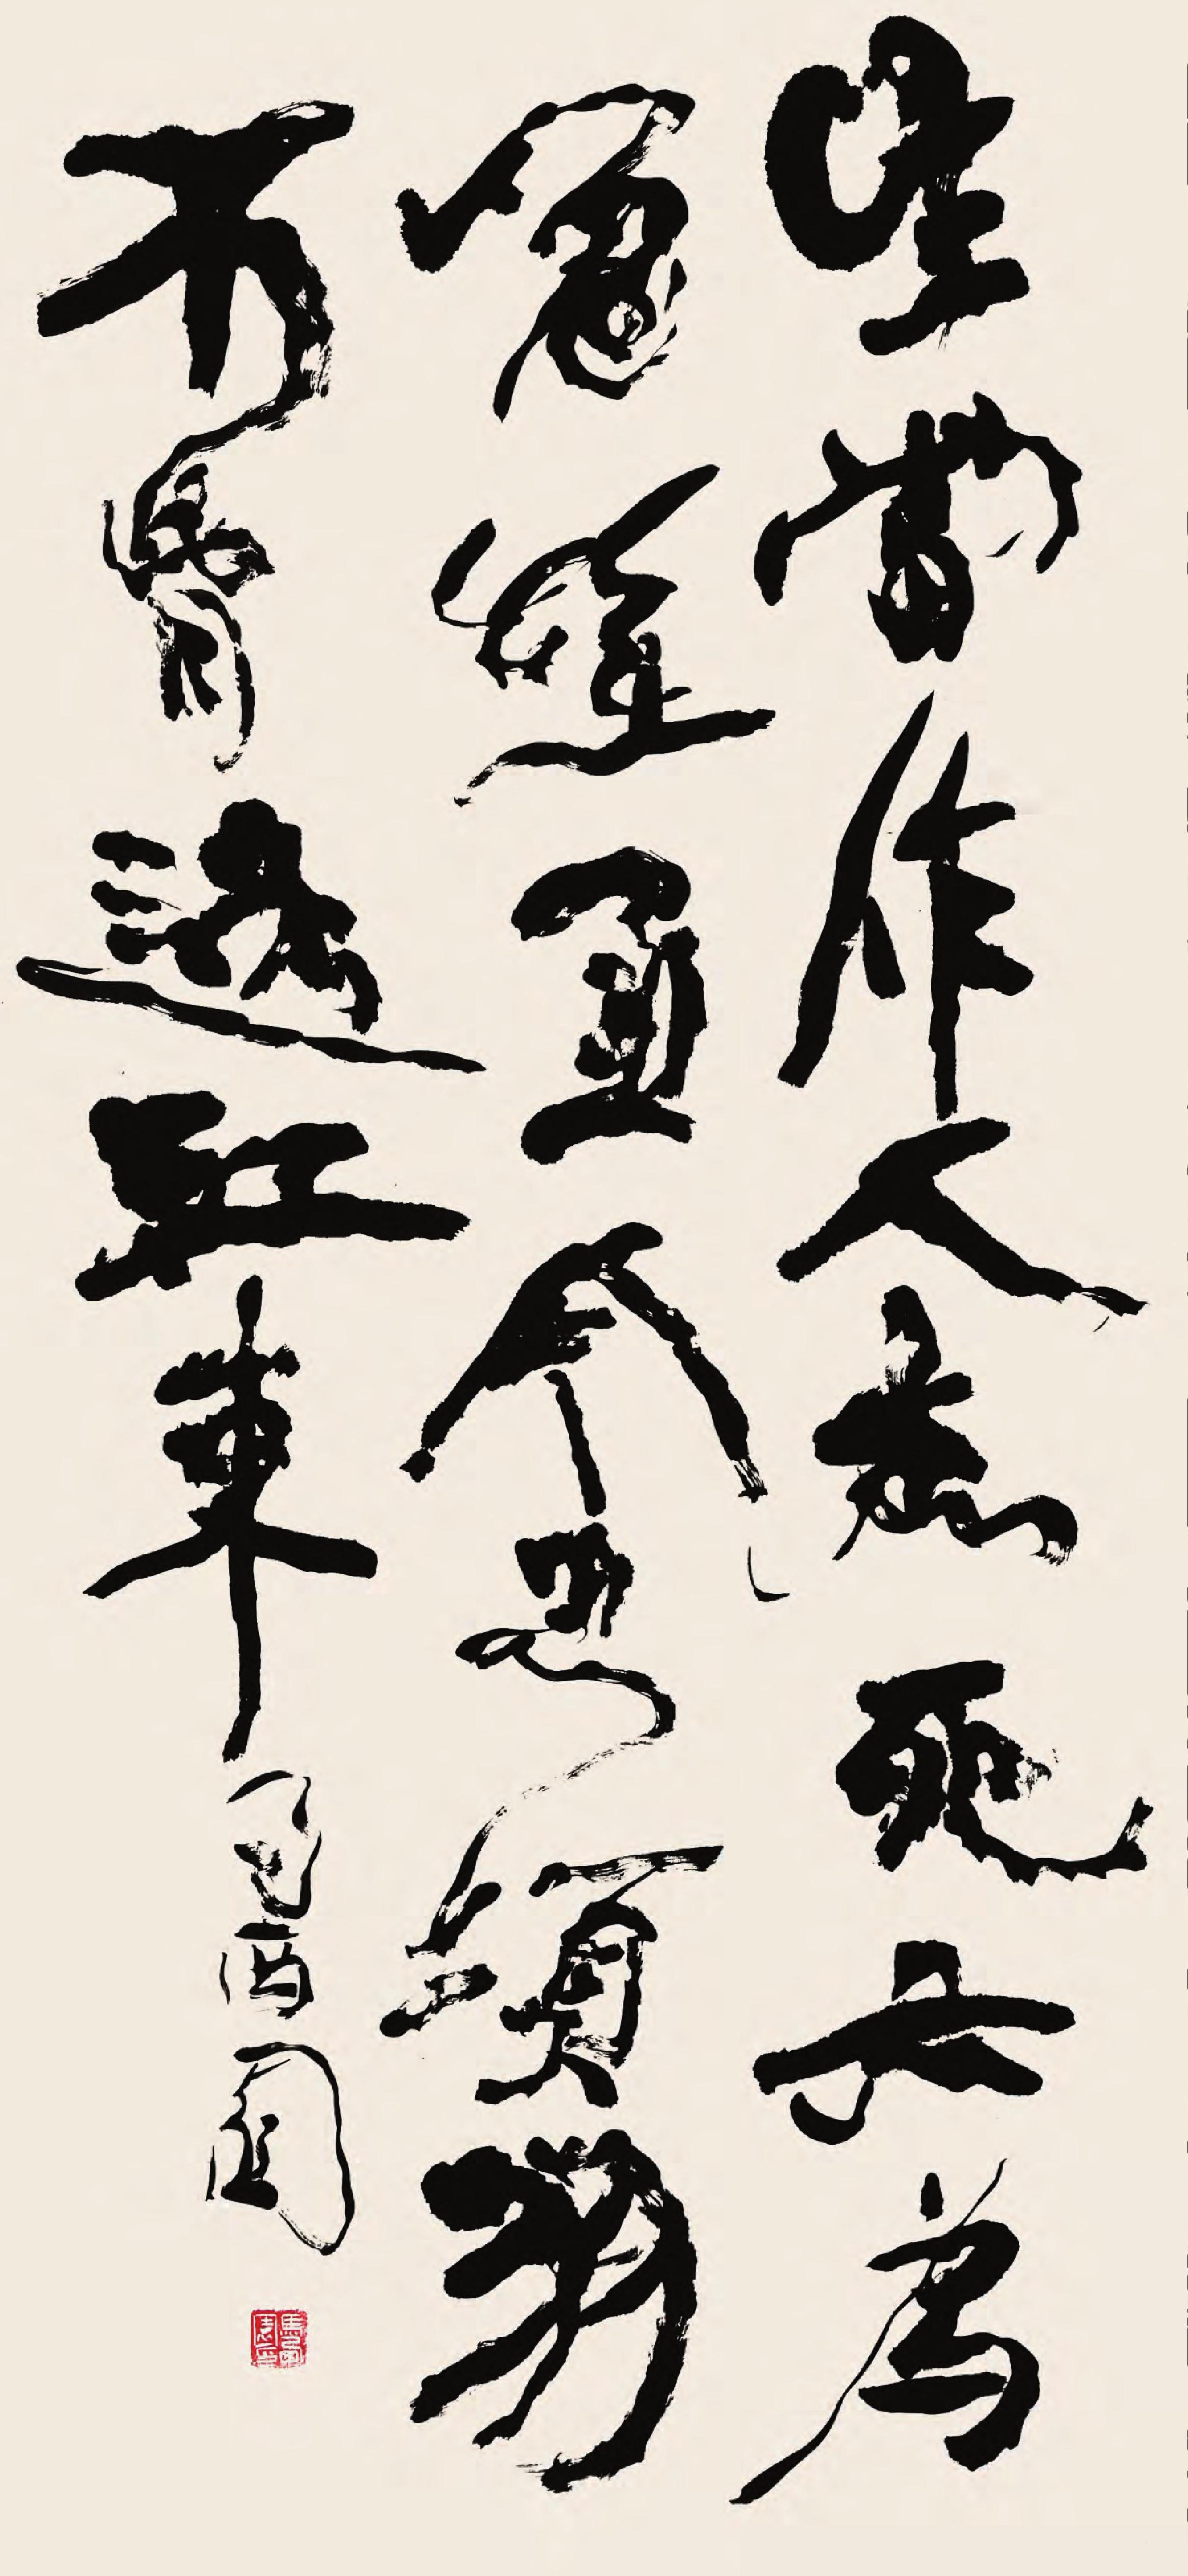 生當作人杰死亦為
鬼雄至今思項羽
不肯過江東
酉